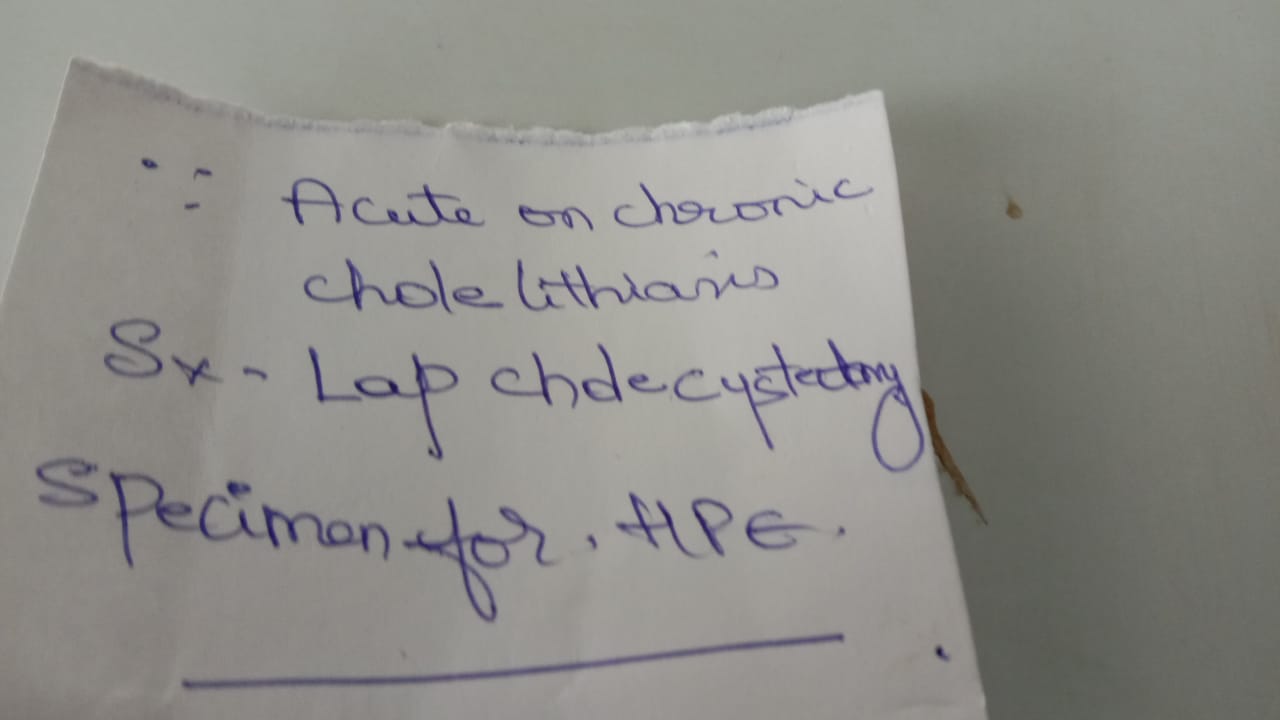 ∵ Acute on chronic
cholelithiasis
Sx - Lap cholecystectomy
Specimen for. HPE.